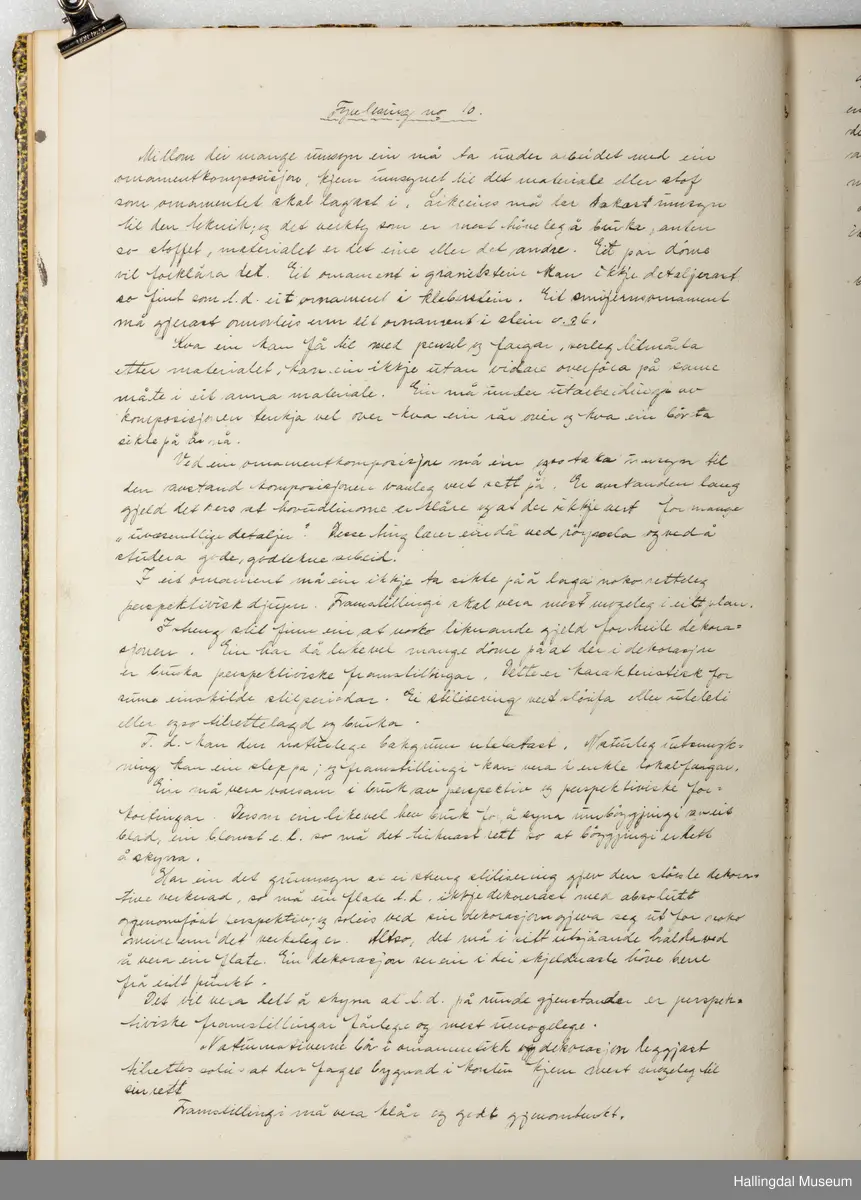 Fyrelesing no 10.
Millom dei mange umsyn ein må ta under arbeidet med ein
ornamentkomposisjon, kjem umsynet til det materiale eller stof
som ornamentet skal lagast i. Likeeins må der takast umsyn
til den teknik, og det verkty som er mest høveleg å bruka, anten
so stoffet, materialet er det eine eller det andre. Eit par døme
vil forklåra det. Eit ornament i granitstein kan ikkje detaljerast
so fint som t.d. eit ornament i kleberstein. Eit smijernsornament
må gjerast onnorleis enn eit ornament i stein o.s.b.
Kva ein kan få til med pensel og fargar, serleg litmåla
etter materialet, kan ein ikkje utan vidare overføra på same
måte i eit anna materiale. Ein må under utarbeidingi av
komposisjonen tenkja vel over kva ein rår over og kva ein bør ta
sikte på å nå.
Ved ein ornamentkomposisjon må ein ogso taka umsyn til
den avstand komposisjonen vanleg vert sett på. Er avstanden lang
gjeld det sers at hovudlinorne er klåre og at der ikkje vert for mange
„uvæsentlige detaljer". Desse ting lærer ein då ved røynsla og ved å
studera gode, godtekne arbeid.
I eit ornament må ein ikkje ta sikte på å laga noko retteleg
perspektivisk djupn. Framstillingi skal vera mest mogeleg i eitt plan.
I streng stil finn ein at noko liknande gjeld for heile dekora=
sjonen. Ein har då likevel mange døme på at der i dekorasjon
er bruka perspektiviske framstillingar. Dette er karakteristisk for
sume einskilde stilperiodar. Ei stilisering vert sløyfa eller uteleti
eller ogso tilrettelagd og bruka.
T.d. kan den naturlege bakgrunn utelatast. Naturleg utsmyk=
ning kan ein sleppa; og framstillingi kan vera i enkle lokalfargar.
Ein må vera varsam i bruk av perspektiv og perspektiviske for=
kortingar. Dersom ein likevel hev bruk for å syna umbøygjingi av eit
blad, ein blomst e.l. so må det teiknast rett so at bøygjingi er lett
å skyna.
Har ein det grunnsyn at ei streng stilisering gjev den største dekora=
tive verknad, so må ein flate t.d. ikkje dekorerast med absolutt
gjenomført perspektiv; og soleis ved ein dekorasjon gjeva seg ut for noko
onnor enn det verkeleg er. Altso, det må i sitt utsjåande halda ved
å vera ein flate. Ein dekorasjon ser ein i dei skjeldnaste høve berre
frå eitt punkt.
Det vil vera lett å skyna at t.d. på runde gjenstandar er perspek=
tiviske framstillingar fårlege og mest umogelege.
Naturmotiverne bør i ornamentikk og dekorasjon leggjast
tilrettes soleis at den fagre bygnad i kortein kjem mest mogeleg til
sin rett
Framstillingi må vera klår og godt gjenomtenkt.
Hallingdal Museum